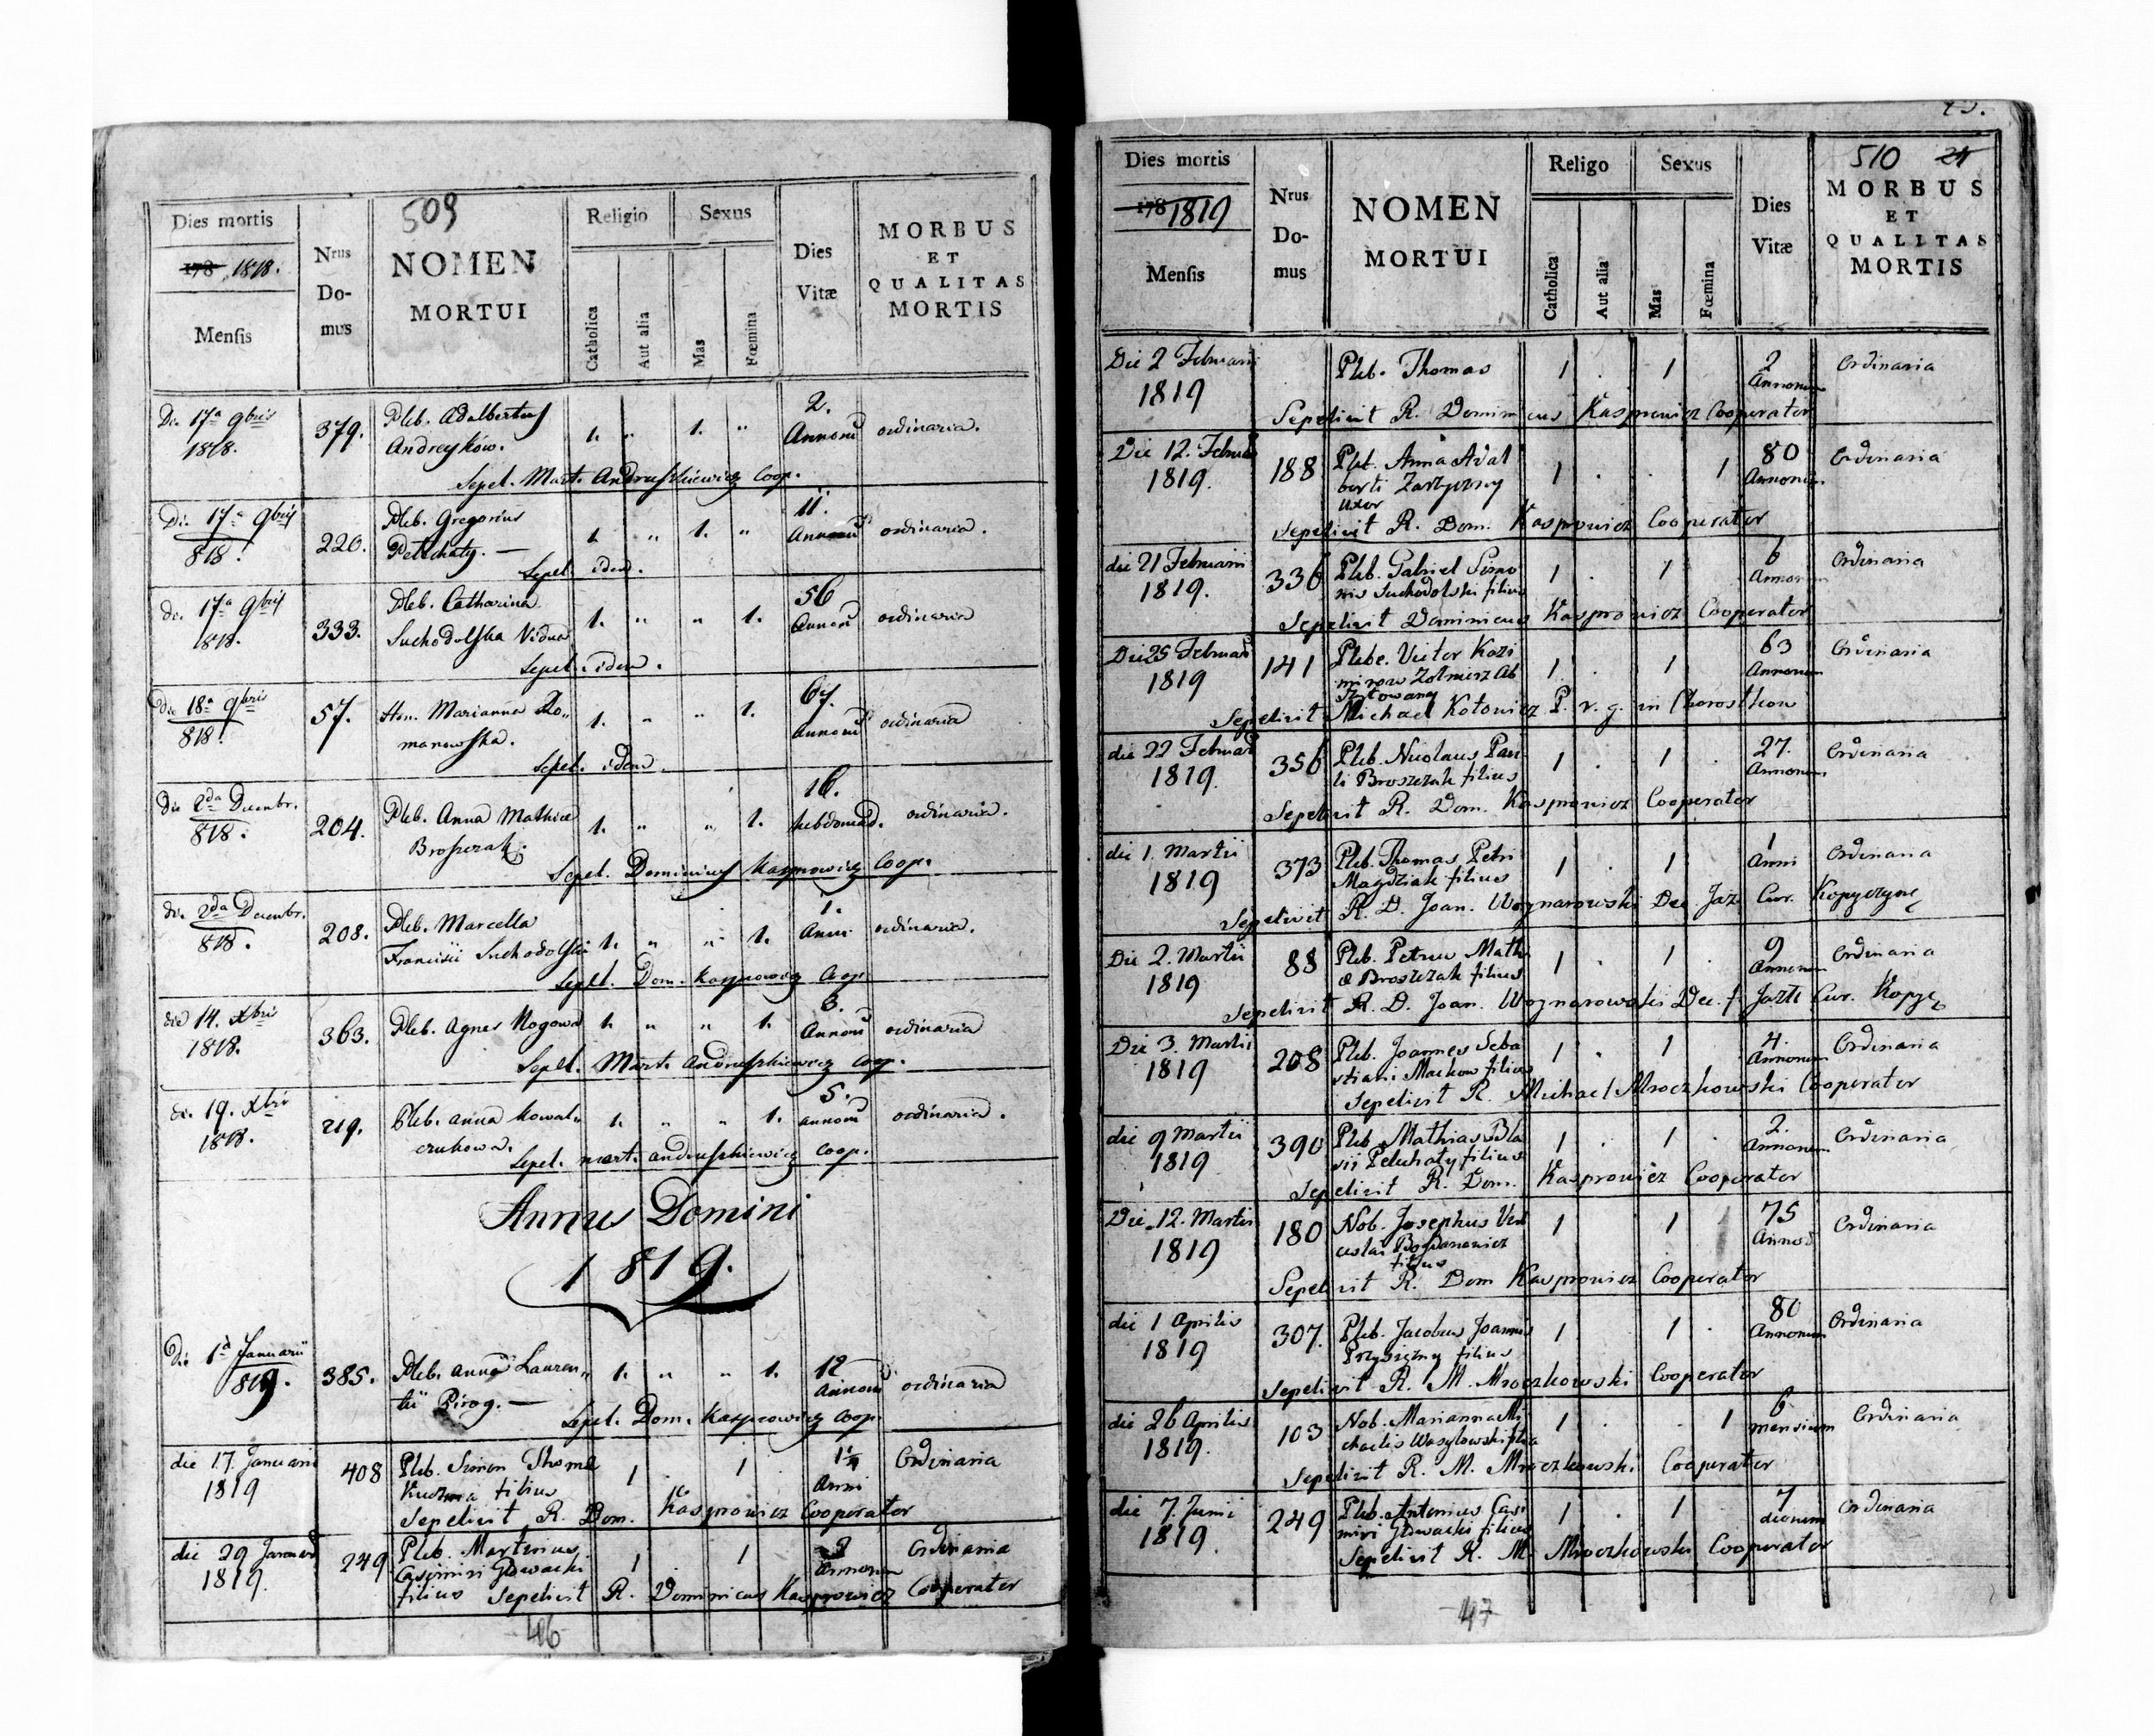 509
Dies mortis
178 1818.
Mensis
Nrus
Do-
mus
NOMEN
MORTUI
Religio
Catholica
Aut alia
Sexus
Mas
Fœmina
Dies
Vitæ
MORBUS
ET
QUALITAS
MORTIS
Die 17a 9bris 379. Pleb. Adalbertus 1. " 1. " 2. ordinaria.
1818. Andreyków. Annorū
Sepel. Mart. Andruszkiewicz Coop.
Die 17a 9bris 220. Pleb. Gregorius 1. " 1. " 11. ordinaria.
818. Petuchaty. — Annorū
Sepel. idem.
die 17a 9bris 333. Pleb. Catharina 1. " " 1. 56 ordinaria
1818. Suchodolska Vidua Annorū
Sepel. idem.
Die 18a 9bris 57. Hon. Marianna Ro„ 1. " " 1. 67. ordinaria
818. manowska. Annorū
Sepel. idem.
Die 2da Decembr. 204. Pleb. Anna Mathiæ 1. " " 1. 16. ordinaria.
818. Broszczak. hebdomad.
Sepel. Dominicus Kasprowicz Coop.
die 2da Decembr. 208. Pleb. Marcella 1. " " 1. 1. ordinaria.
818. Francisci Suchodolski Anni
Sepel. Dom. Kasprowicz Coop.
die 14. Xbris 363. Pleb. Agnes Rogowa 1. " " 1. 3. ordinaria
1818. Annorū
Sepel. Mart. Andruszkiewicz Coop.
die 19. Xbris 219. Pleb. Anna Kowal„ 1. " " 1. 5. ordinaria.
1818. czukowa. annorū
Sepel. mart. andruszkiewicz Coop.
Annus Domini
1819.
Die 1a Januarii 385. Pleb. anna Lauren„ 1. " " 1. 12 ordinaria
819. tii Pirog. — Annorū
Sepel. Dom. Kasprowicz Coop.
die 17. Januarii 408 Pleb. Simon Thomæ 1 . 1 . Ordinaria
1819 Kuzma filius Anni
Sepelivit R. Dom. Kasprowicz Cooperator
die 29 Januarii 249 Pleb. Martinus 1 . 1 Ordinaria
1819. Casimiri Głowacki Annorum
filius Sepelivit R. Dominicus Kasprowicz Cooperator
46
510
Dies mortis
178 1819
Mensis
Nrus
Do-
mus
NOMEN
MORTUI
Religo
Catholica
Aut alia
Sexus
Mas
Fœmina
Dies
Vitæ
MORBUS
ET
QUALITAS
MORTIS
Die 2 Februarii Pleb. Thomas 1 . 1 2 Ordinaria
1819 Annorum
Sepelivit R. Dominicus Kasprowicz Cooperator
Die 12. Februarii 188 Pleb. Anna Adal 1 . . 1 80 Ordinaria
1819. berti Zarzyczny Annorum
uxor
Sepelivit R. Dom. Kasprowicz Cooperator
die 21 Februarii 336 Pleb. Gabriel Simo 1 . 1 6 Ordinaria
1819. nis Suchodolski filius Annorum
Sepelivit Dominicus Kasprowicz Cooperator
Die 25 Februarii 141 Plebe. Victor Kazi 1 . 1 63 Ordinaria
1819 mirow Zolnierz Ab Annorum
szytowany
Sepelivit Michael Kotowicz P. r. g. in Chorostkow
die 22 Februarii 356 Pleb. Nicolaus Pau 1 . 1 . 27. Ordinaria
1819. li Broszczak filius Annorum
Sepelivit R. Dom. Kasprowicz Cooperator
die 1. Martii 373 Pleb. Thomas Petri 1 . 1 1 Ordinaria
1819 Magdziak filius Anni
Sepelivit R. D. Joan. Woynarowski Dec. Jaz. Cur. Kopyczync
Die 2. Martii 88 Pleb. Petrus Mathi 1 . 1 . 9 Ordinaria
1819 æ Broszczak filius Annorum
Sepelivit R. D. Joan. Woynarowski Dec. Jazl. Cur. Kopyc
Die 3. Martii 208 Pleb. Joannes Seba 1 . 1 4. Ordinaria
1819 stiani Mackow filius Annorum
Sepelivit R. Michael Mroczkowski Cooperator
die 9 Martii 390 Pleb. Mathias Bla 1 . 1 . 2. Ordinaria
1819 sii Peluchaty filius Annorum
Sepelivit R. Dom. Kasprowicz Cooperator
Die 12. Martii 180 Nob. Josephus Ven 1 1 75 Ordinaria
1819 ceslai Bogdanowicz Annorū
filius
Sepelivit R. Dom Kasprowicz Cooperator
die 1 Aprilis 307. Pleb. Jacobus Joannis 1 1 . 80 Ordinaria
1819 Przysiężny filius Annorum
Sepelivit R. M. Mroczkowski Cooperator
die 26 Aprilis 103 Nob. Marianna Mi 1 . . 1 6 Ordinaria
1819. chaelis Wasylowski filia mensium
Sepelivit R. M. Mroczkowski Cooperator
die 7. Junii 249 Pleb. Antonius Casi 1 . 1 . 7 Ordinaria
1819. miri Głowacki filius dierum
Sepelivit R. M. Mroczkowski Cooperator
47